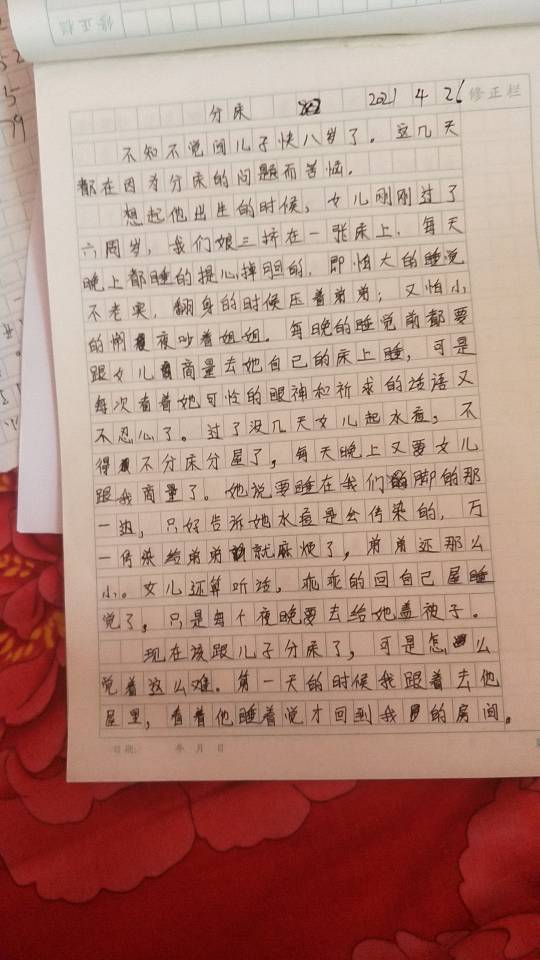 分床 2021 4 26
修正栏
不知不觉间儿子快八岁了。这几天
都在因为分床的问题而苦恼。
想起他出生的时候，女儿刚刚过了
六周岁，我们娘三挤在一张床上，每天
晚上都睡的提心掉胆的，即怕大的睡觉
不老实，翻身的时候压着弟弟；又怕小
的半夜吵着姐姐。每晚的睡觉前都要
跟女儿商量去她自己的床上睡，可是
每次看着她可怜的眼神和祈求的话语又
不忍心了。过了没几天女儿起水痘，不
得不分床分屋了，每天晚上又要女儿
跟我商量了。她说要睡在我们脚的那
一边，只好告诉她水痘是会传染的，万
一传染给弟弟就麻烦了，弟弟还那么
小。女儿还算听话，乖乖的回自己屋睡
觉了，只是每个夜晚要去给她盖被子。
现在该跟儿子分床了，可是怎么
觉着这么难。第一天的时候我跟着去他
屋里，看着他睡着觉才回到我的房间。
日期： 年 月 日